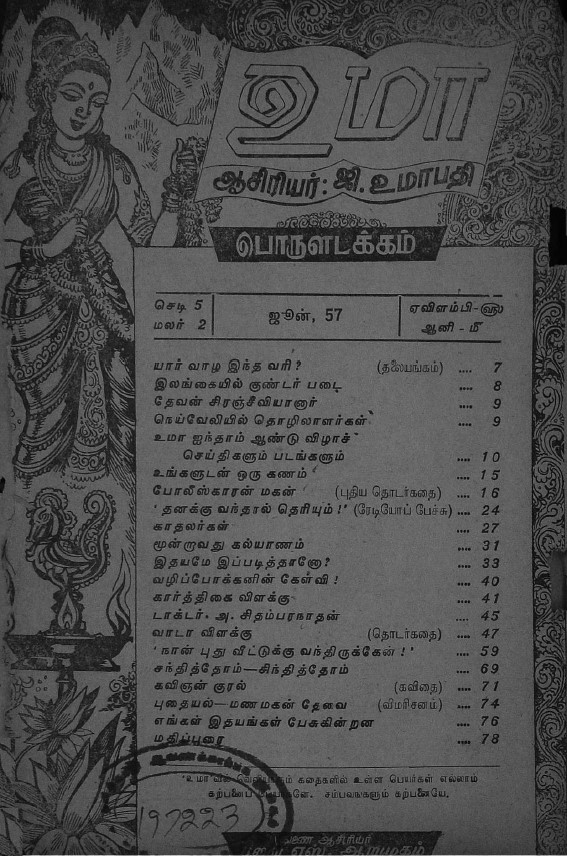 உமா
ஆசிரியர்: ஜி. உமாபதி
பொருளடக்கம்
செடி 5
மலர் 2
ஜூன், 57
ஏவிளம்பி-ஹு
ஆனி - மீ
யார் வாழ இந்த வரி? (தலையங்கம்) .... 7
இலங்கையில் குண்டர் படை .... 8
தேவன் சிரஞ்சீவியானார் .... 9
நெய்வேலியில் தொழிலாளர்கள் .... 9
உமா ஐந்தாம் ஆண்டு விழாச்
செய்திகளும் படங்களும் .... 10
உங்களுடன் ஒரு கணம் .... 15
போலீஸ்காரன் மகன் (புதிய தொடர்கதை) .... 16
'தனக்கு வந்தால் தெரியும்!' (ரேடியோப் பேச்சு) .... 24
காதலர்கள் .... 27
மூன்றாவது கல்யாணம் .... 31
இதயமே இப்படித்தானோ? .... 33
வழிப்போக்கனின் கேள்வி! .... 40
கார்த்திகை விளக்கு .... 41
டாக்டர். அ. சிதம்பரநாதன் .... 45
வாடா விளக்கு (தொடர்கதை) .... 47
'நான் புது வீட்டுக்கு வந்திருக்கேன்!' .... 59
சந்தித்தோம்—சிந்தித்தோம் .... 69
கவிஞன் குரல் (கவிதை) .... 71
புதையல்—மணமகன் தேவை (விமரிசனம்) .... 74
எங்கள் இதயங்கள் பேசுகின்றன .... 76
மதிப்புரை .... 78
'உமா'வில் வெளிவரும் கதைகளில் உள்ள பெயர்கள் எல்லாம்
கற்பனைப் பெயர்களே. சம்பவங்களும் கற்பனையே.
197223
துணை ஆசிரியர்
எஸ். ஆறுமுகம்